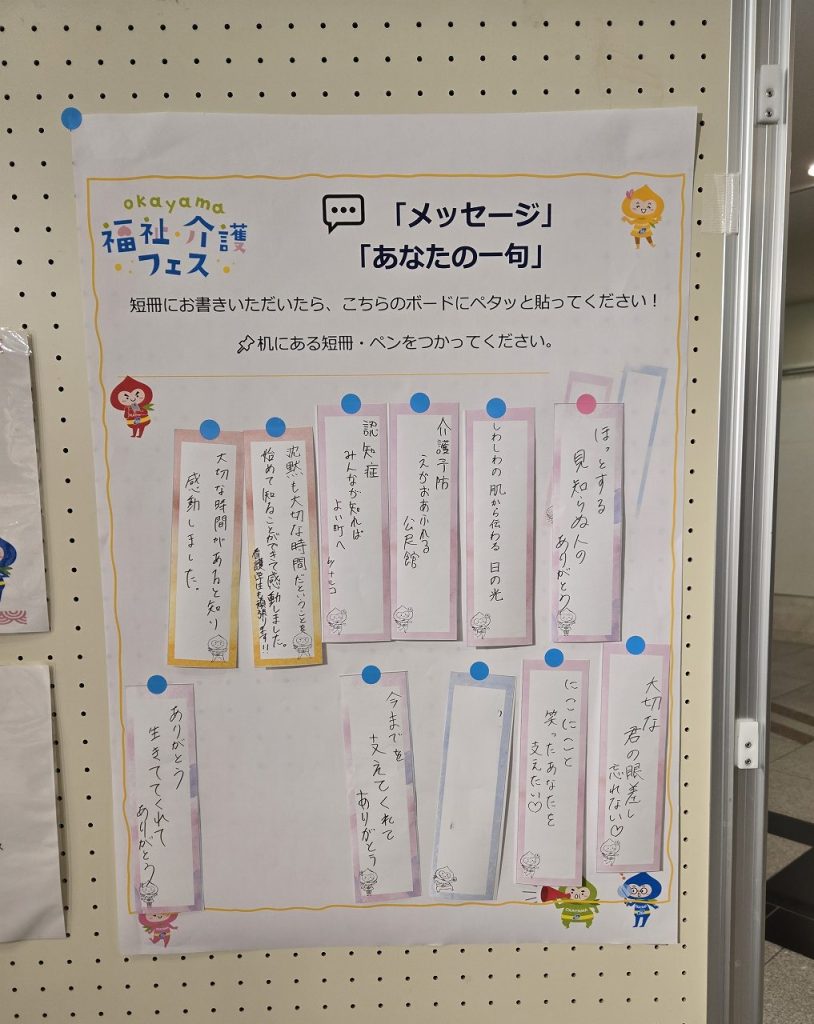 okayama
福祉・介護
フェス
「メッセージ」
「あなたの一句」
短冊にお書きいただいたら、こちらのボードにペタッと貼ってください！
机にある短冊・ペンをつかってください。
ほっとする
見知らぬ人の
ありがとう
しわしわの 肌から伝わる 日の光
介護予防
えがおあふれる
公民館
認知症
みんなが知れば
よい町へ
by ナルコ
沈黙も大切な時間だということを
始めて知ることができて感動しました。
看護学生も頑張ります!!
大切な時間があると知り
感動しました。
大切な
君の眼差し
忘れない♡
にこにこと
笑ったあなたを
支えたい♡
今までを
支えてくれて
ありがとう
ありがとう
生きててくれて
ありがとう